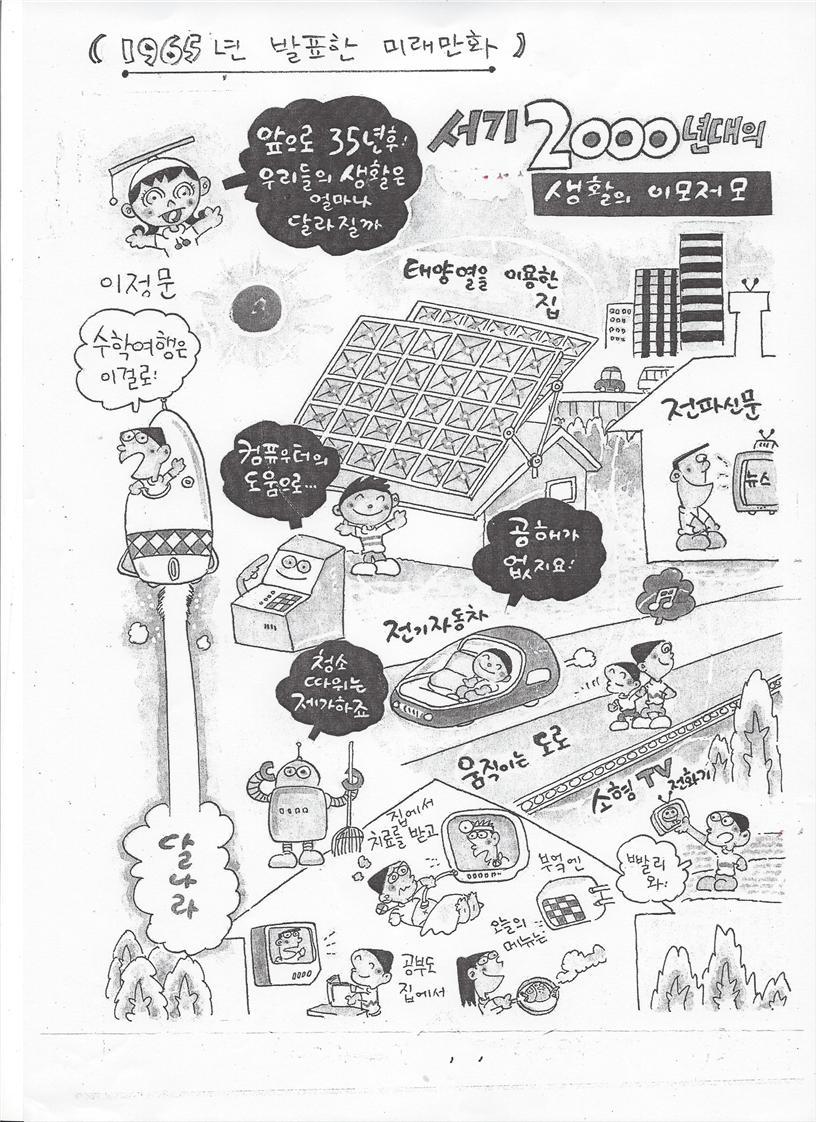 ( 1965년 발표한 미래만화 )
앞으로 35년후!
우리들의 생활은
얼마나
달라질까
서기 2000년대의
생활의 이모저모
이정문
수학여행은
이걸로!
태양열을 이용한
집
전파신문
뉴스
컴퓨우터의
도움으로...
공해가
없지요!
전기자동차
청소
따위는
제가하죠
움직이는 도로
소형 TV
전화기
빨리
와!
달나라
집에서
치료를 받고
부엌엔
오늘의
메뉴는
공부도
집에서